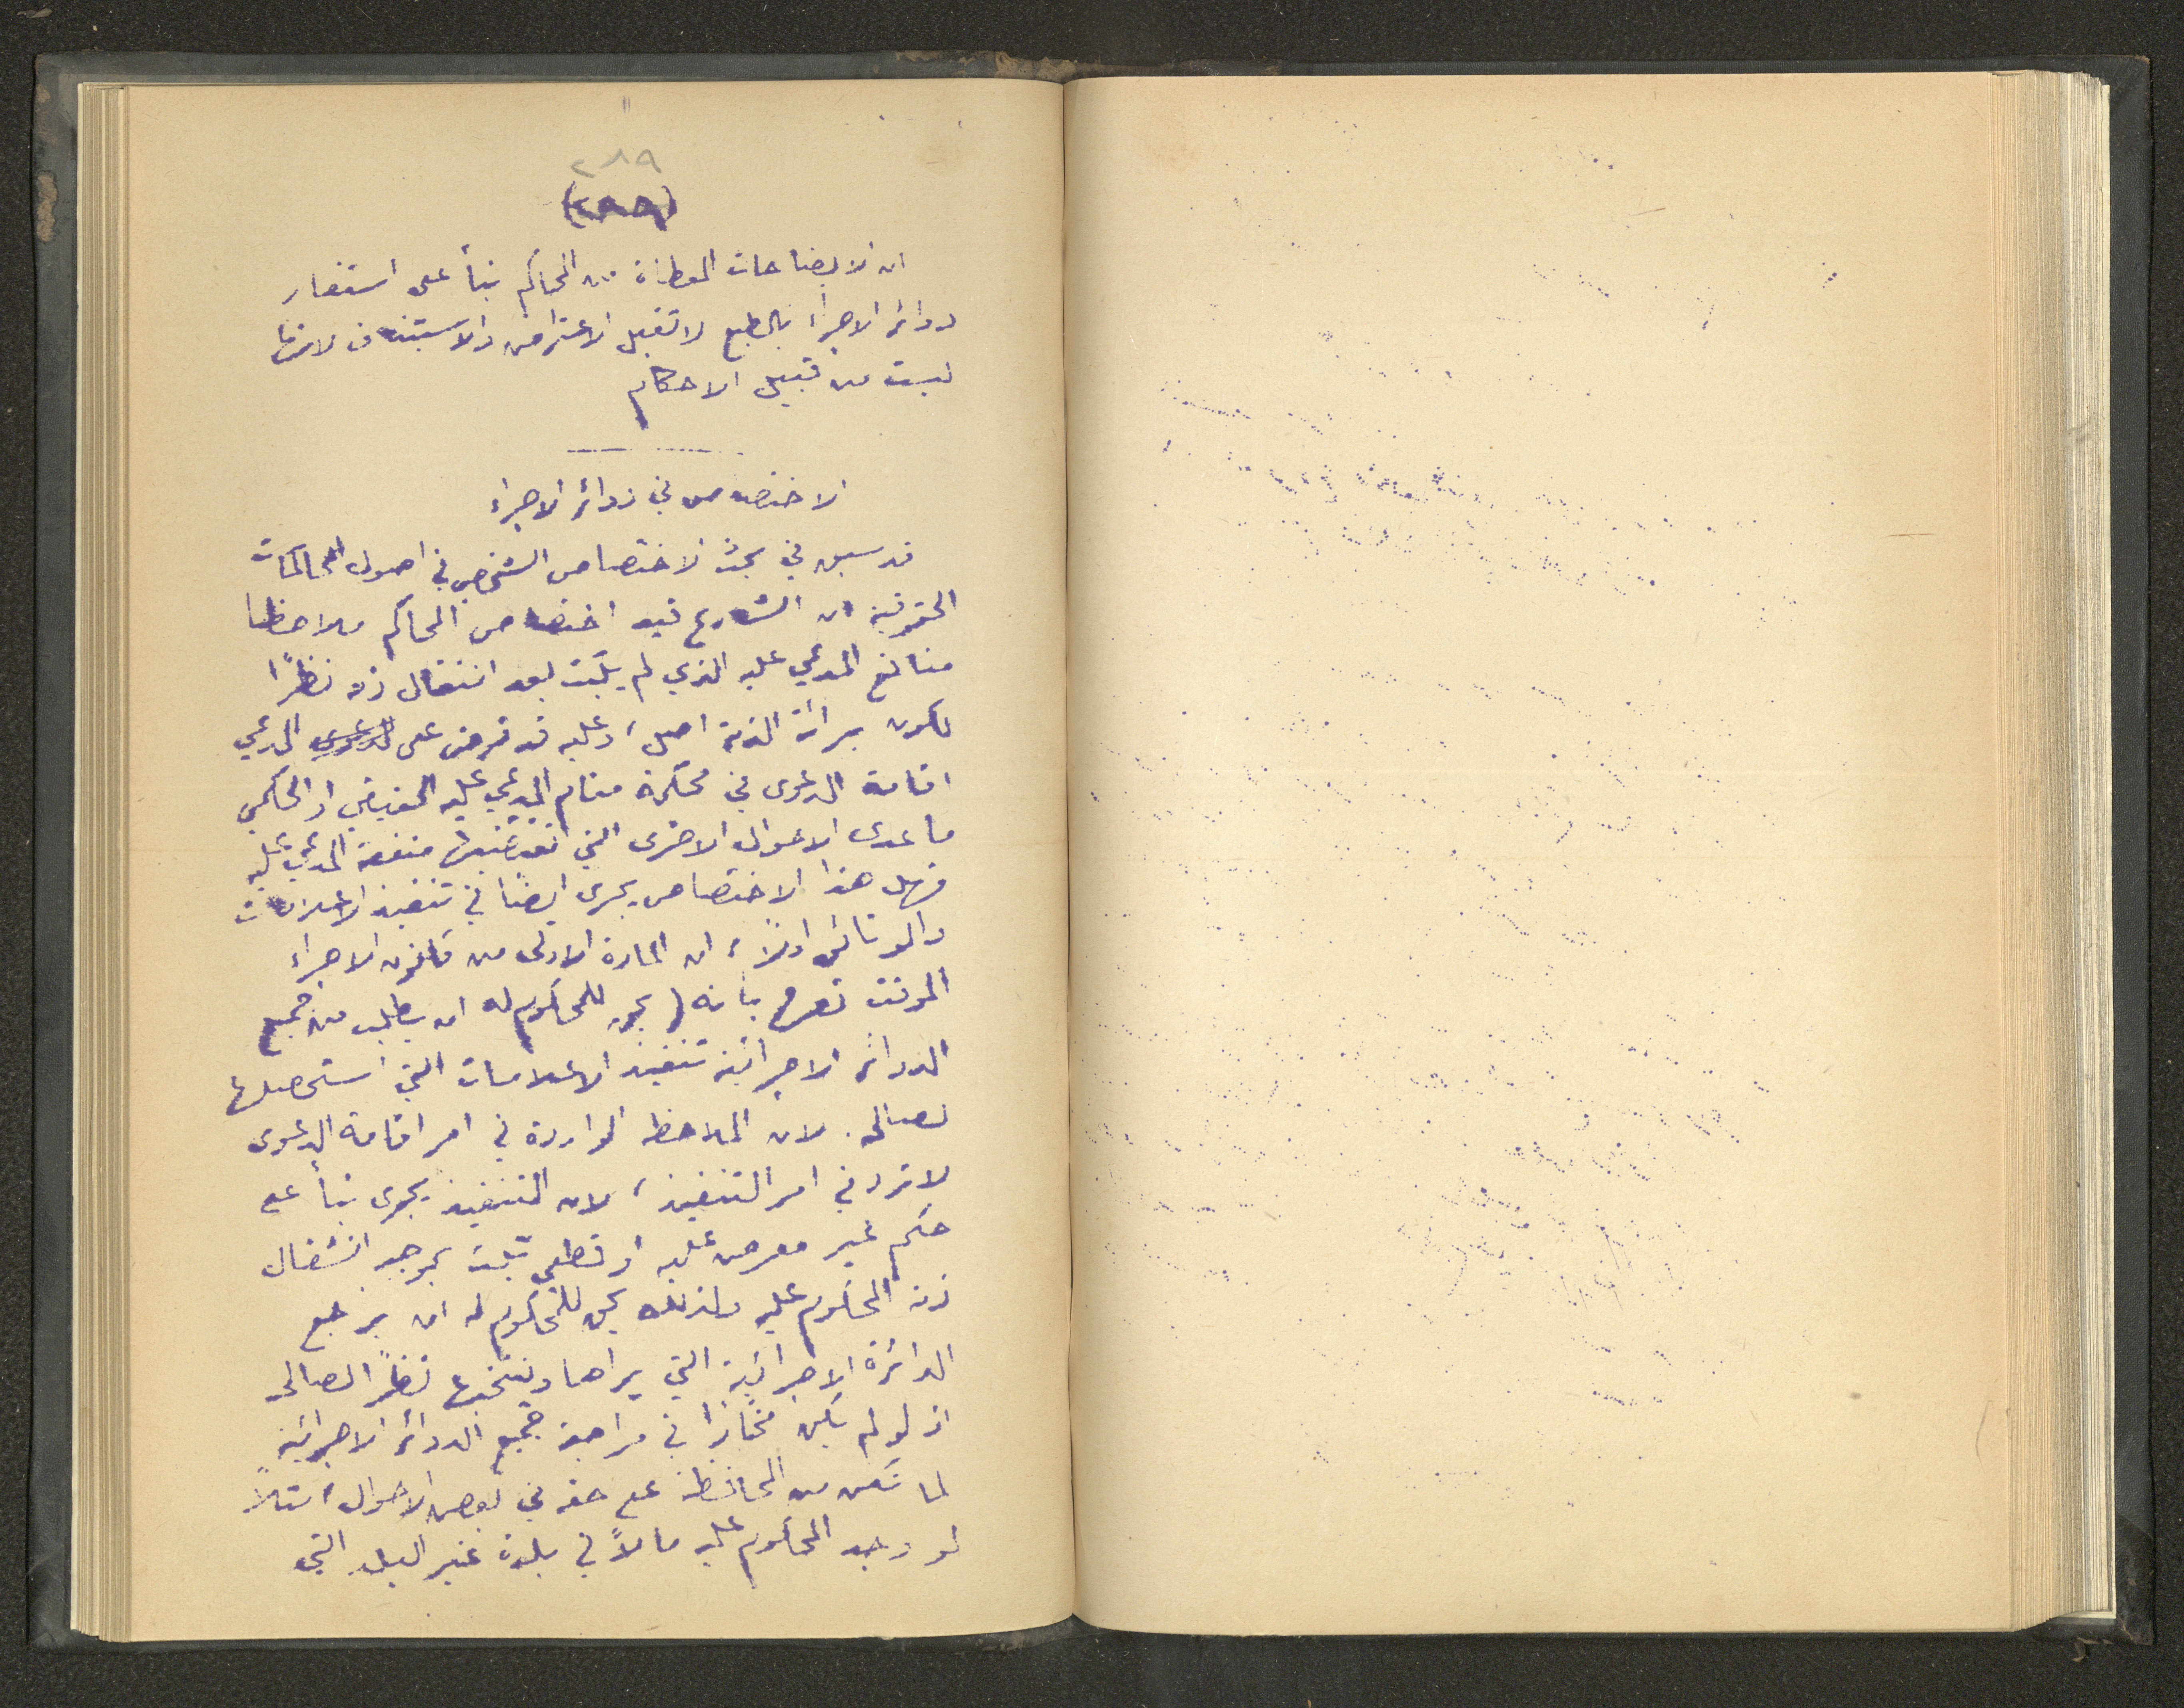 ٢٨٩
ان الايضاحات المعطاة من المحاكم بنأ على استفسار
دوائر الاجراء بالطبع لا تقبل الاعتراض والاستئناف لانها
ليست من قبيل الاحكام
الاختصاص في دوائر الاجراء
قد سبق في بحث الاختصاص الشخصي في اصول المحاكمات
الحقوقية ان الشارع قيد اختصاص المحاكم ملاحظا
منافع المدعي عليه الذي لم يثبت بعد انشغال ذمته نظرًا
لكون برائة الذمة اصل، وعليه قد فرض على المدعي
اقامة الدعوى في محكمة مقام المدعي عليه الحقيقي او الحكمي
ما عدى الاحوال الاخرى التي منفعة المدعي عليه
فهل هذا الاختصاص يجرى ايضًا في تنفيذ الاعلامات
والوثائق اولاً، ان المادة الاولى من قانون الاجراء
الموقت تصرح بانه يحق للمحكوم له ان يطلب من جميع
الدوائر الاجرائية تنفيذ الاعلامات التي استحصلها
لصالحه. لان الملاحظه الواردة في امر اقامة الدعوى
لا ترد في امر التنفيذ، لان التنفيذ يجرى بنأ على
حكم غير معرض عليه او قطعي ثبت بموجبه انشغال
ذمة المحكوم عليه ولذلك يحق للمحكوم له ان يراجع
الدائرة الاجرائية التي يراها وينتخبها نظرًا لصالحه
اذ لو لم يكن مختارًا في مراجعة جميع الدوائر الاجرائية
لما تمكن من المحافظة على حقه في بعض الاحوال، مثلاً
لو وجد المحكوم عليه مالاً في بلدة غير البلد التي